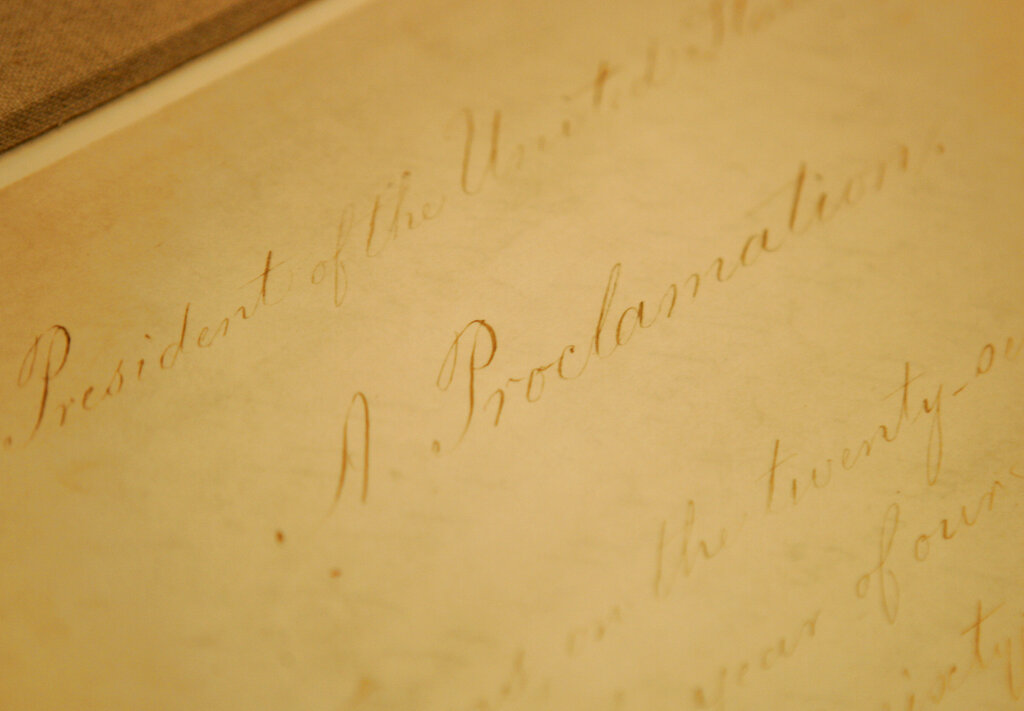 President of the United
A Proclamation.
on the twenty-
year of our